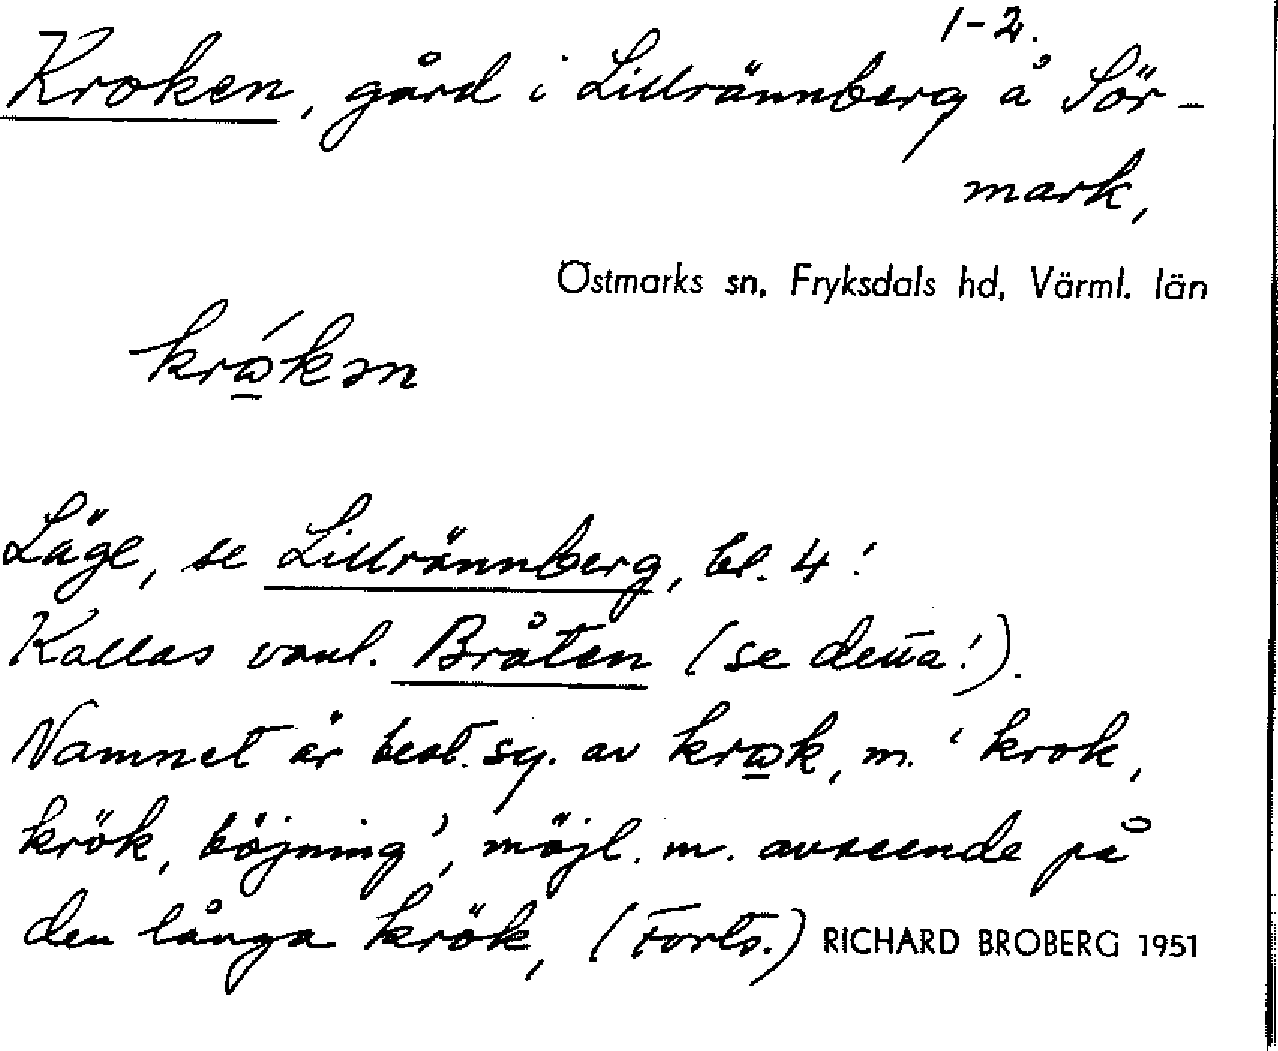 1-2.
Kroken, gård i Lillrännberg å Sör-
mark,
Östmarks sn, Fryksdals hd, Värml. län
krώ̲kən
Läge, se Lillrännberg, bl. 4!
Kallas vanl. Bråten (se detta!).
Namnet är best. sg. av krω̲k, m. ‘krok,
krök, böjning’, möjl. m. avseende på
den långa krök, (Forts.) RICHARD BROBERG 1951